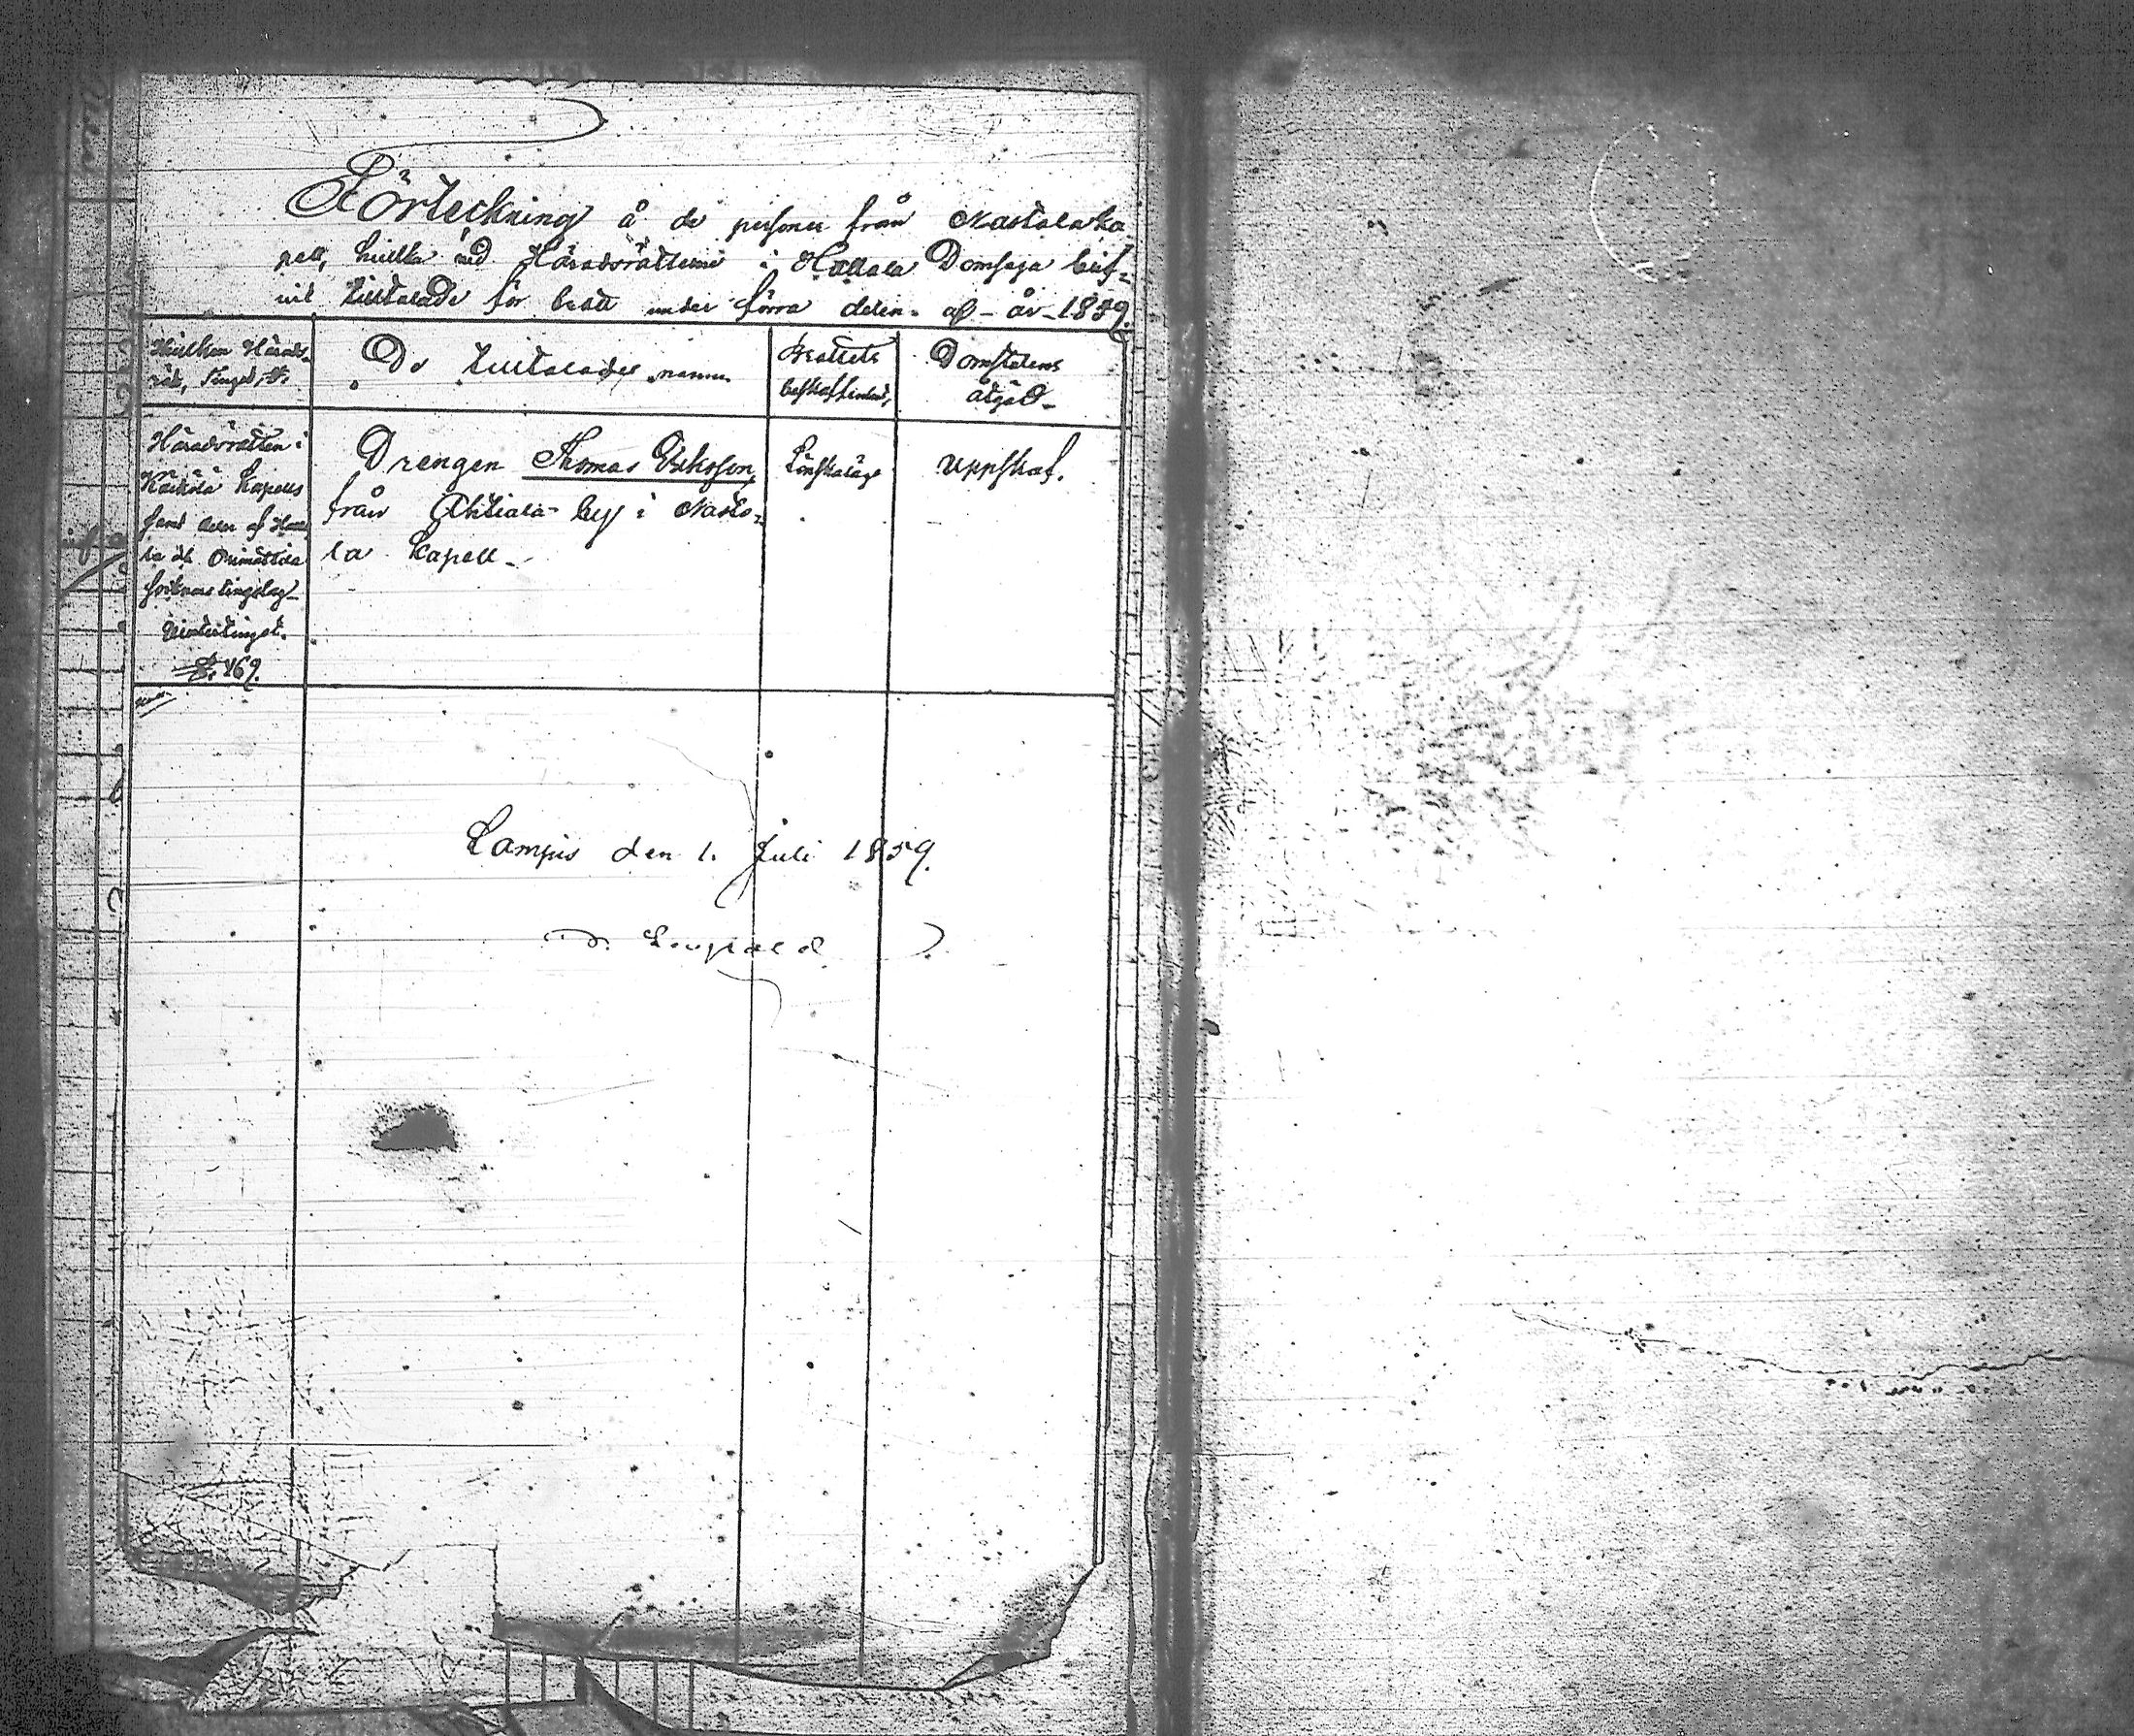 Förteckning å de personer från Nastola ka-
pell, hvilka vid Häradsrätterne i Hollola Domsaga blif-
vit tilltalade för brott under förra delen af år 1859.
Hvilken Härads-
rätt, Tinget, §.
De tilltalades namn
Brottets
beskaffenhet,
Domstolens
åtgärd
Häradsrätten i
Kärkölä kapells
samt delar af Hollo
la och Orimattila
socknars tingslag
Vintertinget.
§. 169.
Drengen Thomas Eriksson
från Ahtiala by i Nasto-
la kapell
Lönskaläge
Uppskof.
Lampis den 1. Juli 1859.